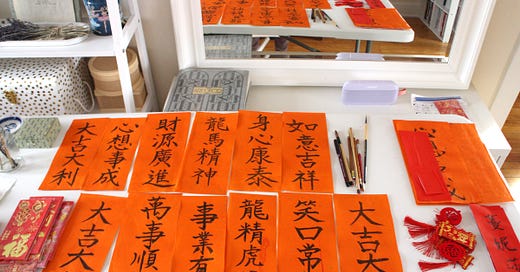 大吉大利
心想事成
財源廣進
龍馬精神
身心康泰
如意吉祥
大吉大
萬事順
事業有
龍精虎
笑口常
大吉大
福